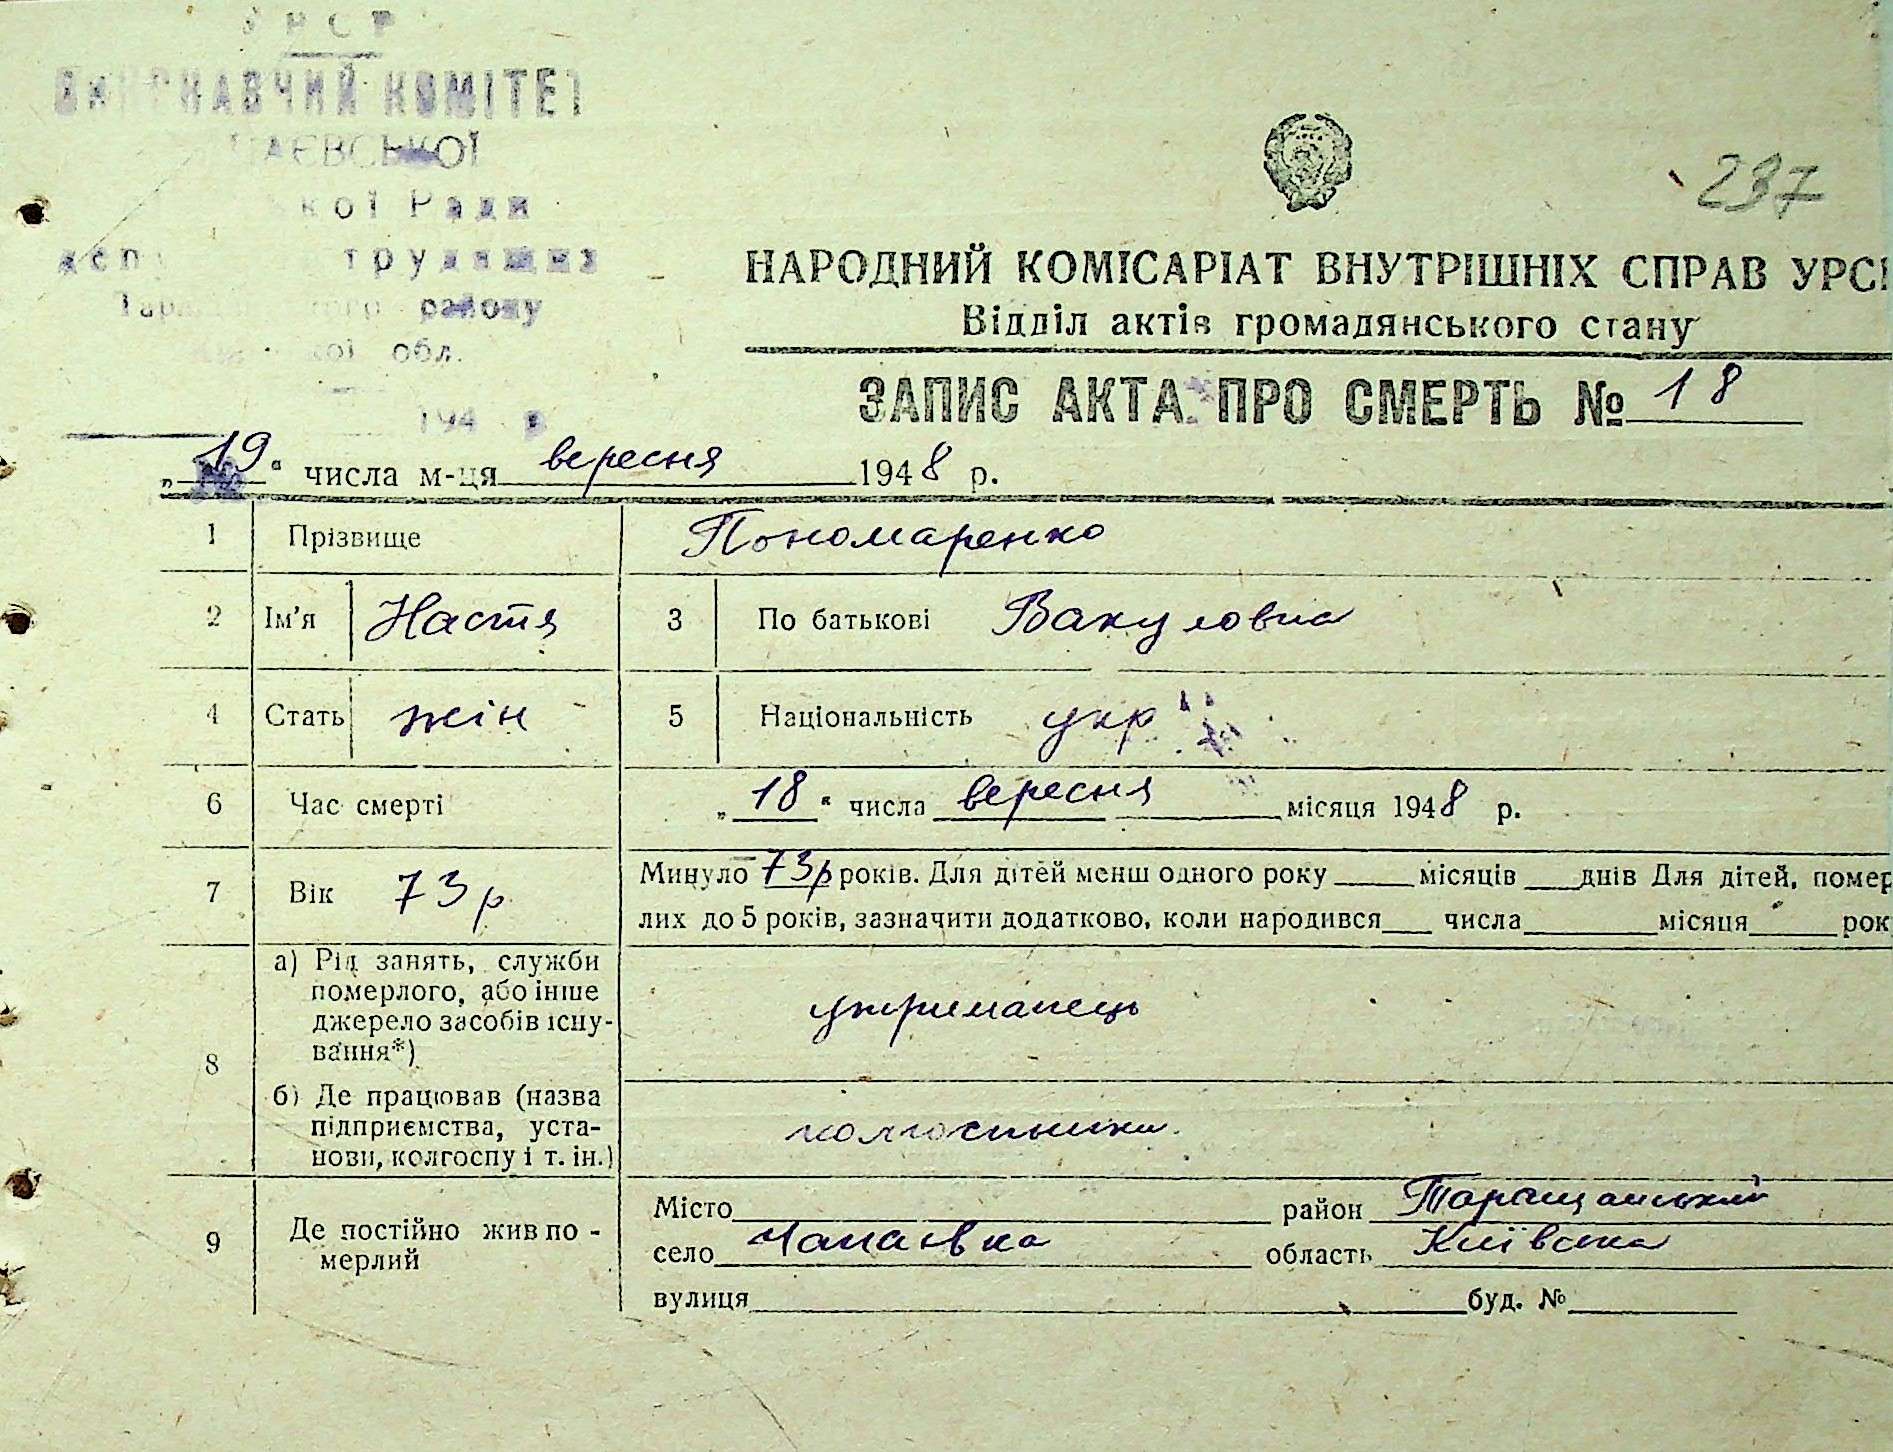 УНСР
ВИКОНАВЧИЙ КОМІТЕТ
ПАЄВСЬКОЇ
кої Ради
трудящих
району
обл.
194 р
237
НАРОДНИЙ КОМІСАРІАТ ВНУТРІШНІХ СПРАВ УРСР
Відділ актів громадянського стану
ЗАПИС АКТА ПРО СМЕРТЬ № 18
„19“ числа м-ця вересня 1948 р.
1 Прізвище Пономаренко
2 Ім’я Настя 3 По батькові Вакуловна
4 Стать жін 5 Національність укр
6 Час смерті „18“ числа вересня місяця 1948 р.
7 Вік 73 р Минуло 73р років. Для дітей менш одного року місяців днів Для дітей, помер
лих до 5 років, зазначити додатково, коли народився числа місяця рок
8 а) Рід занять, служби
померлого, або інше
джерело засобів існу-
вання*) утриманець
б) Де працював (назва
підприємства, уста-
нови, колгоспу і т. ін.) колгоспника
9 Де постійно жив по-
мерлий
Місто район Таращанський
село Чапаєвка область Київська
вулиця буд. №